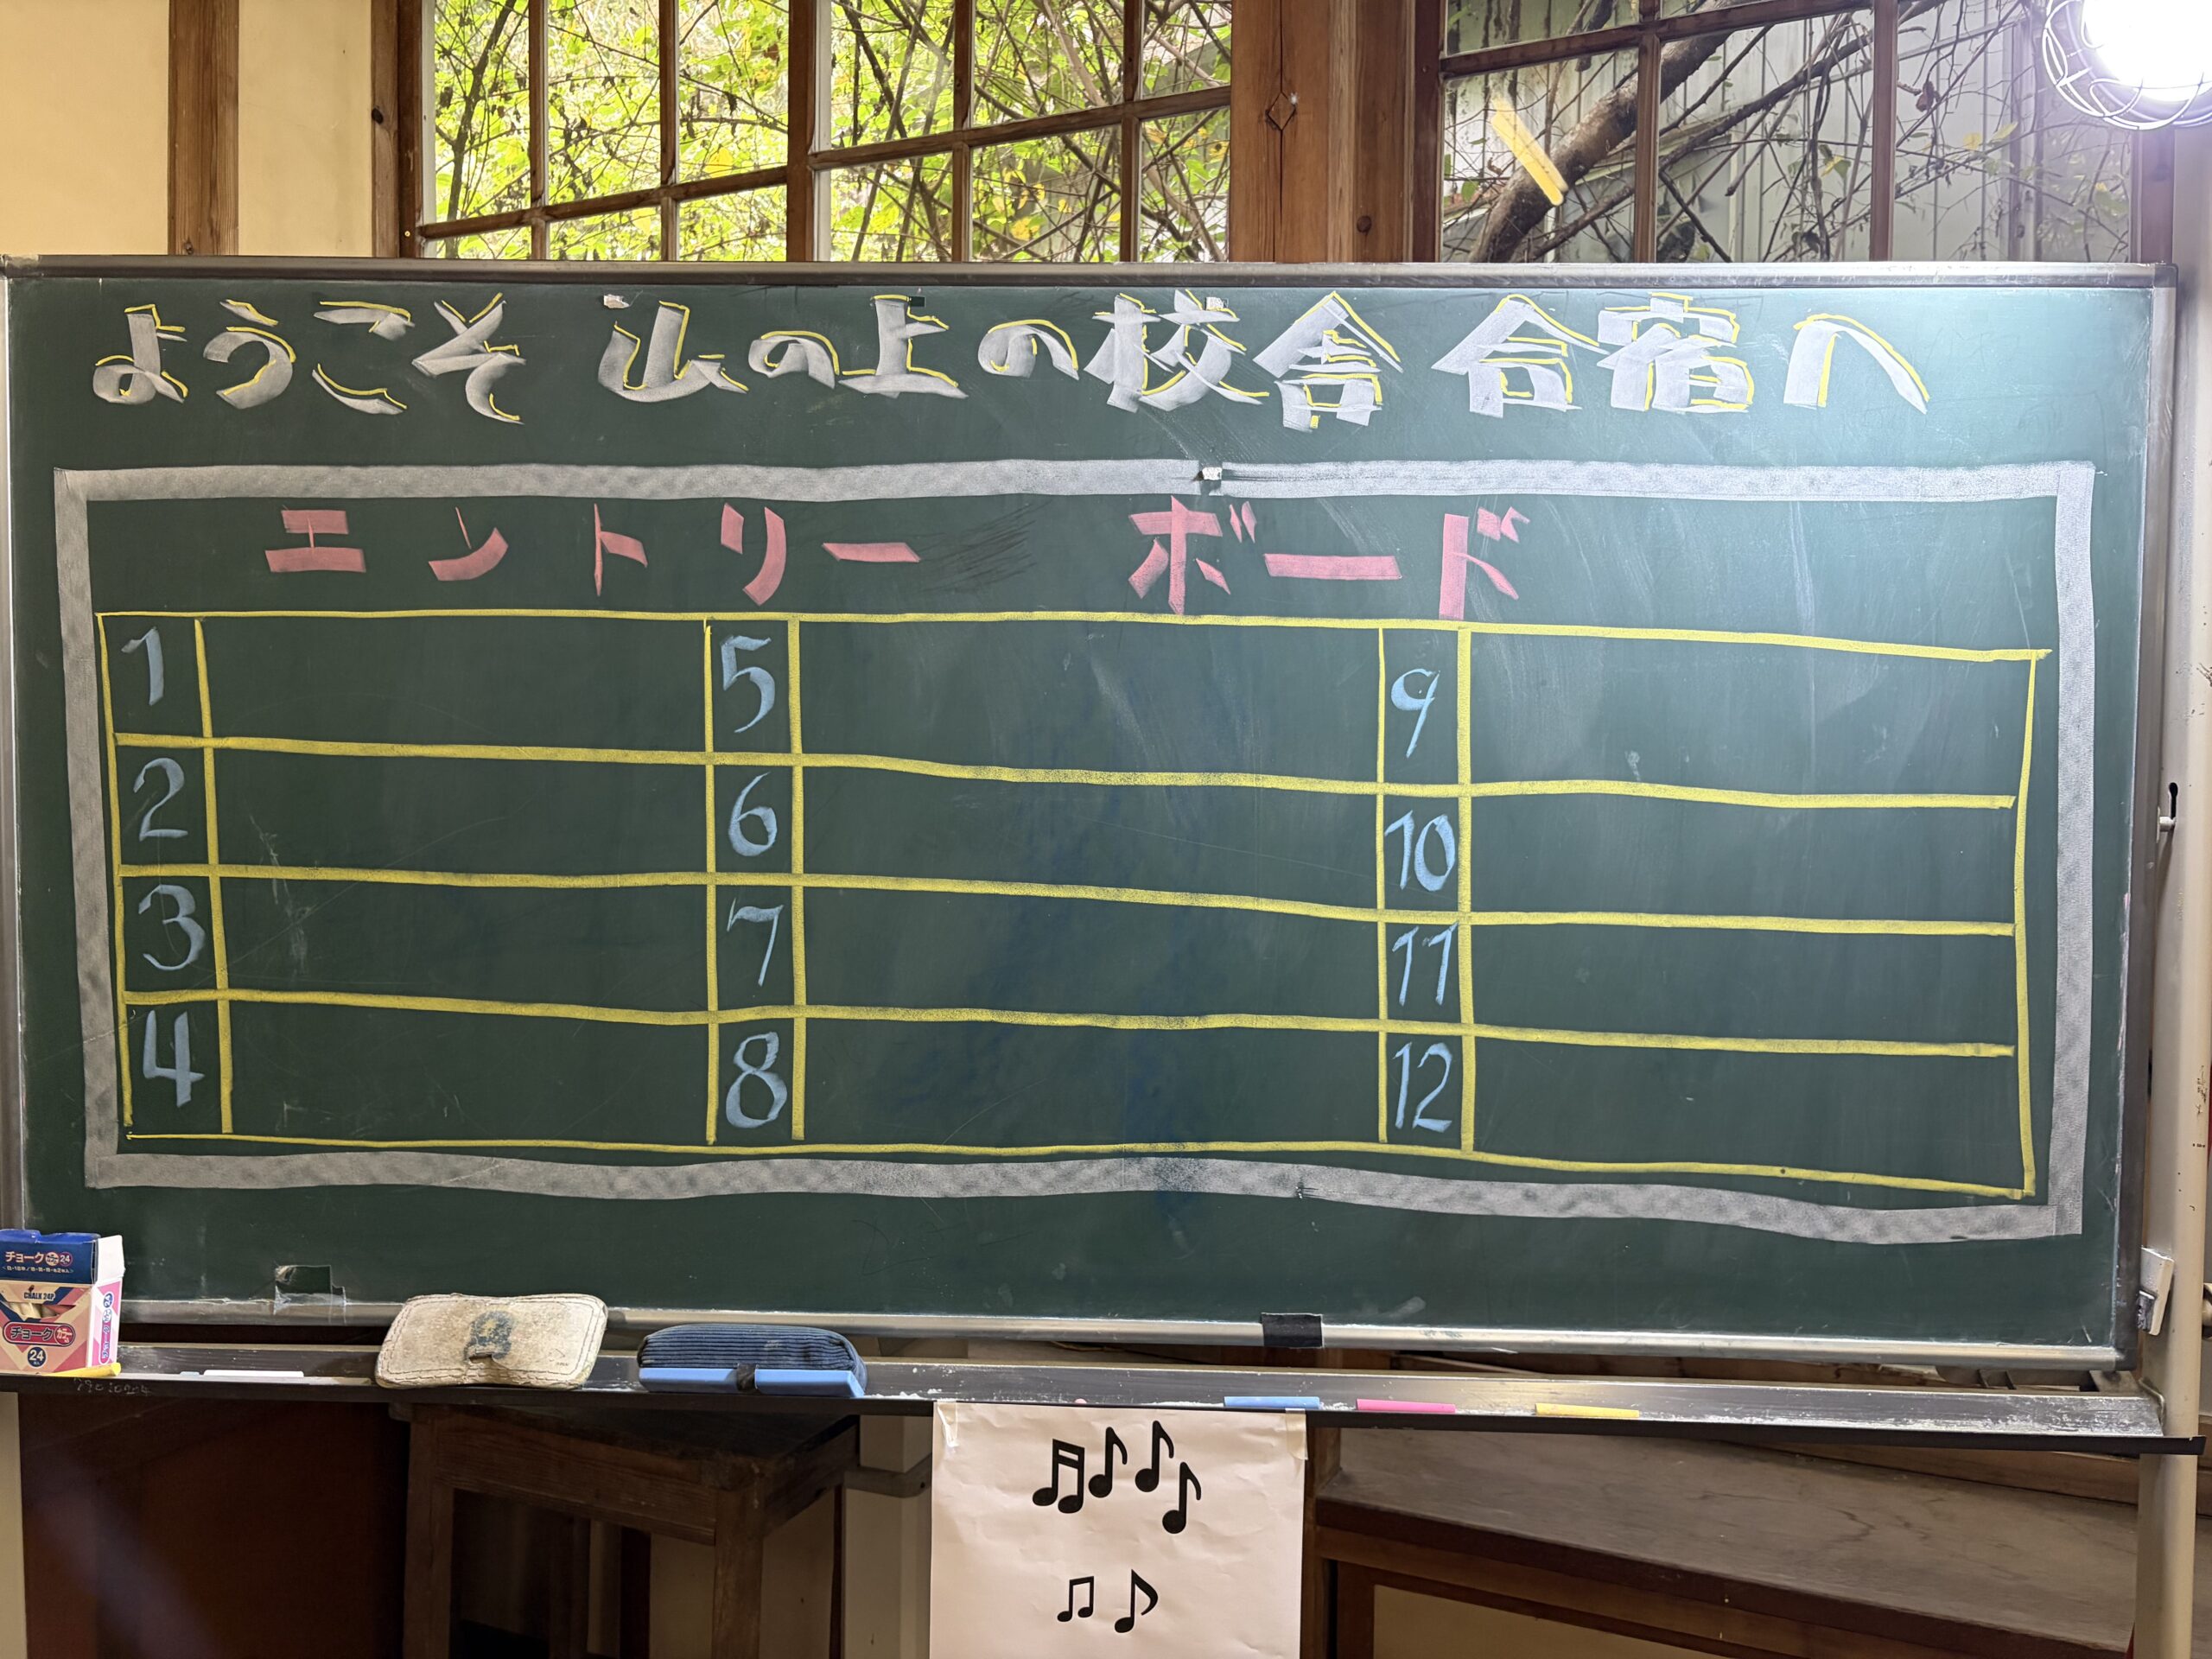 ようこそ 山の上の校舎 合宿へ
エントリー ボード
1 5 9
2 6 10
3 7 11
4 8 12
チョーク 24
CHALK 24P
チョーク
24